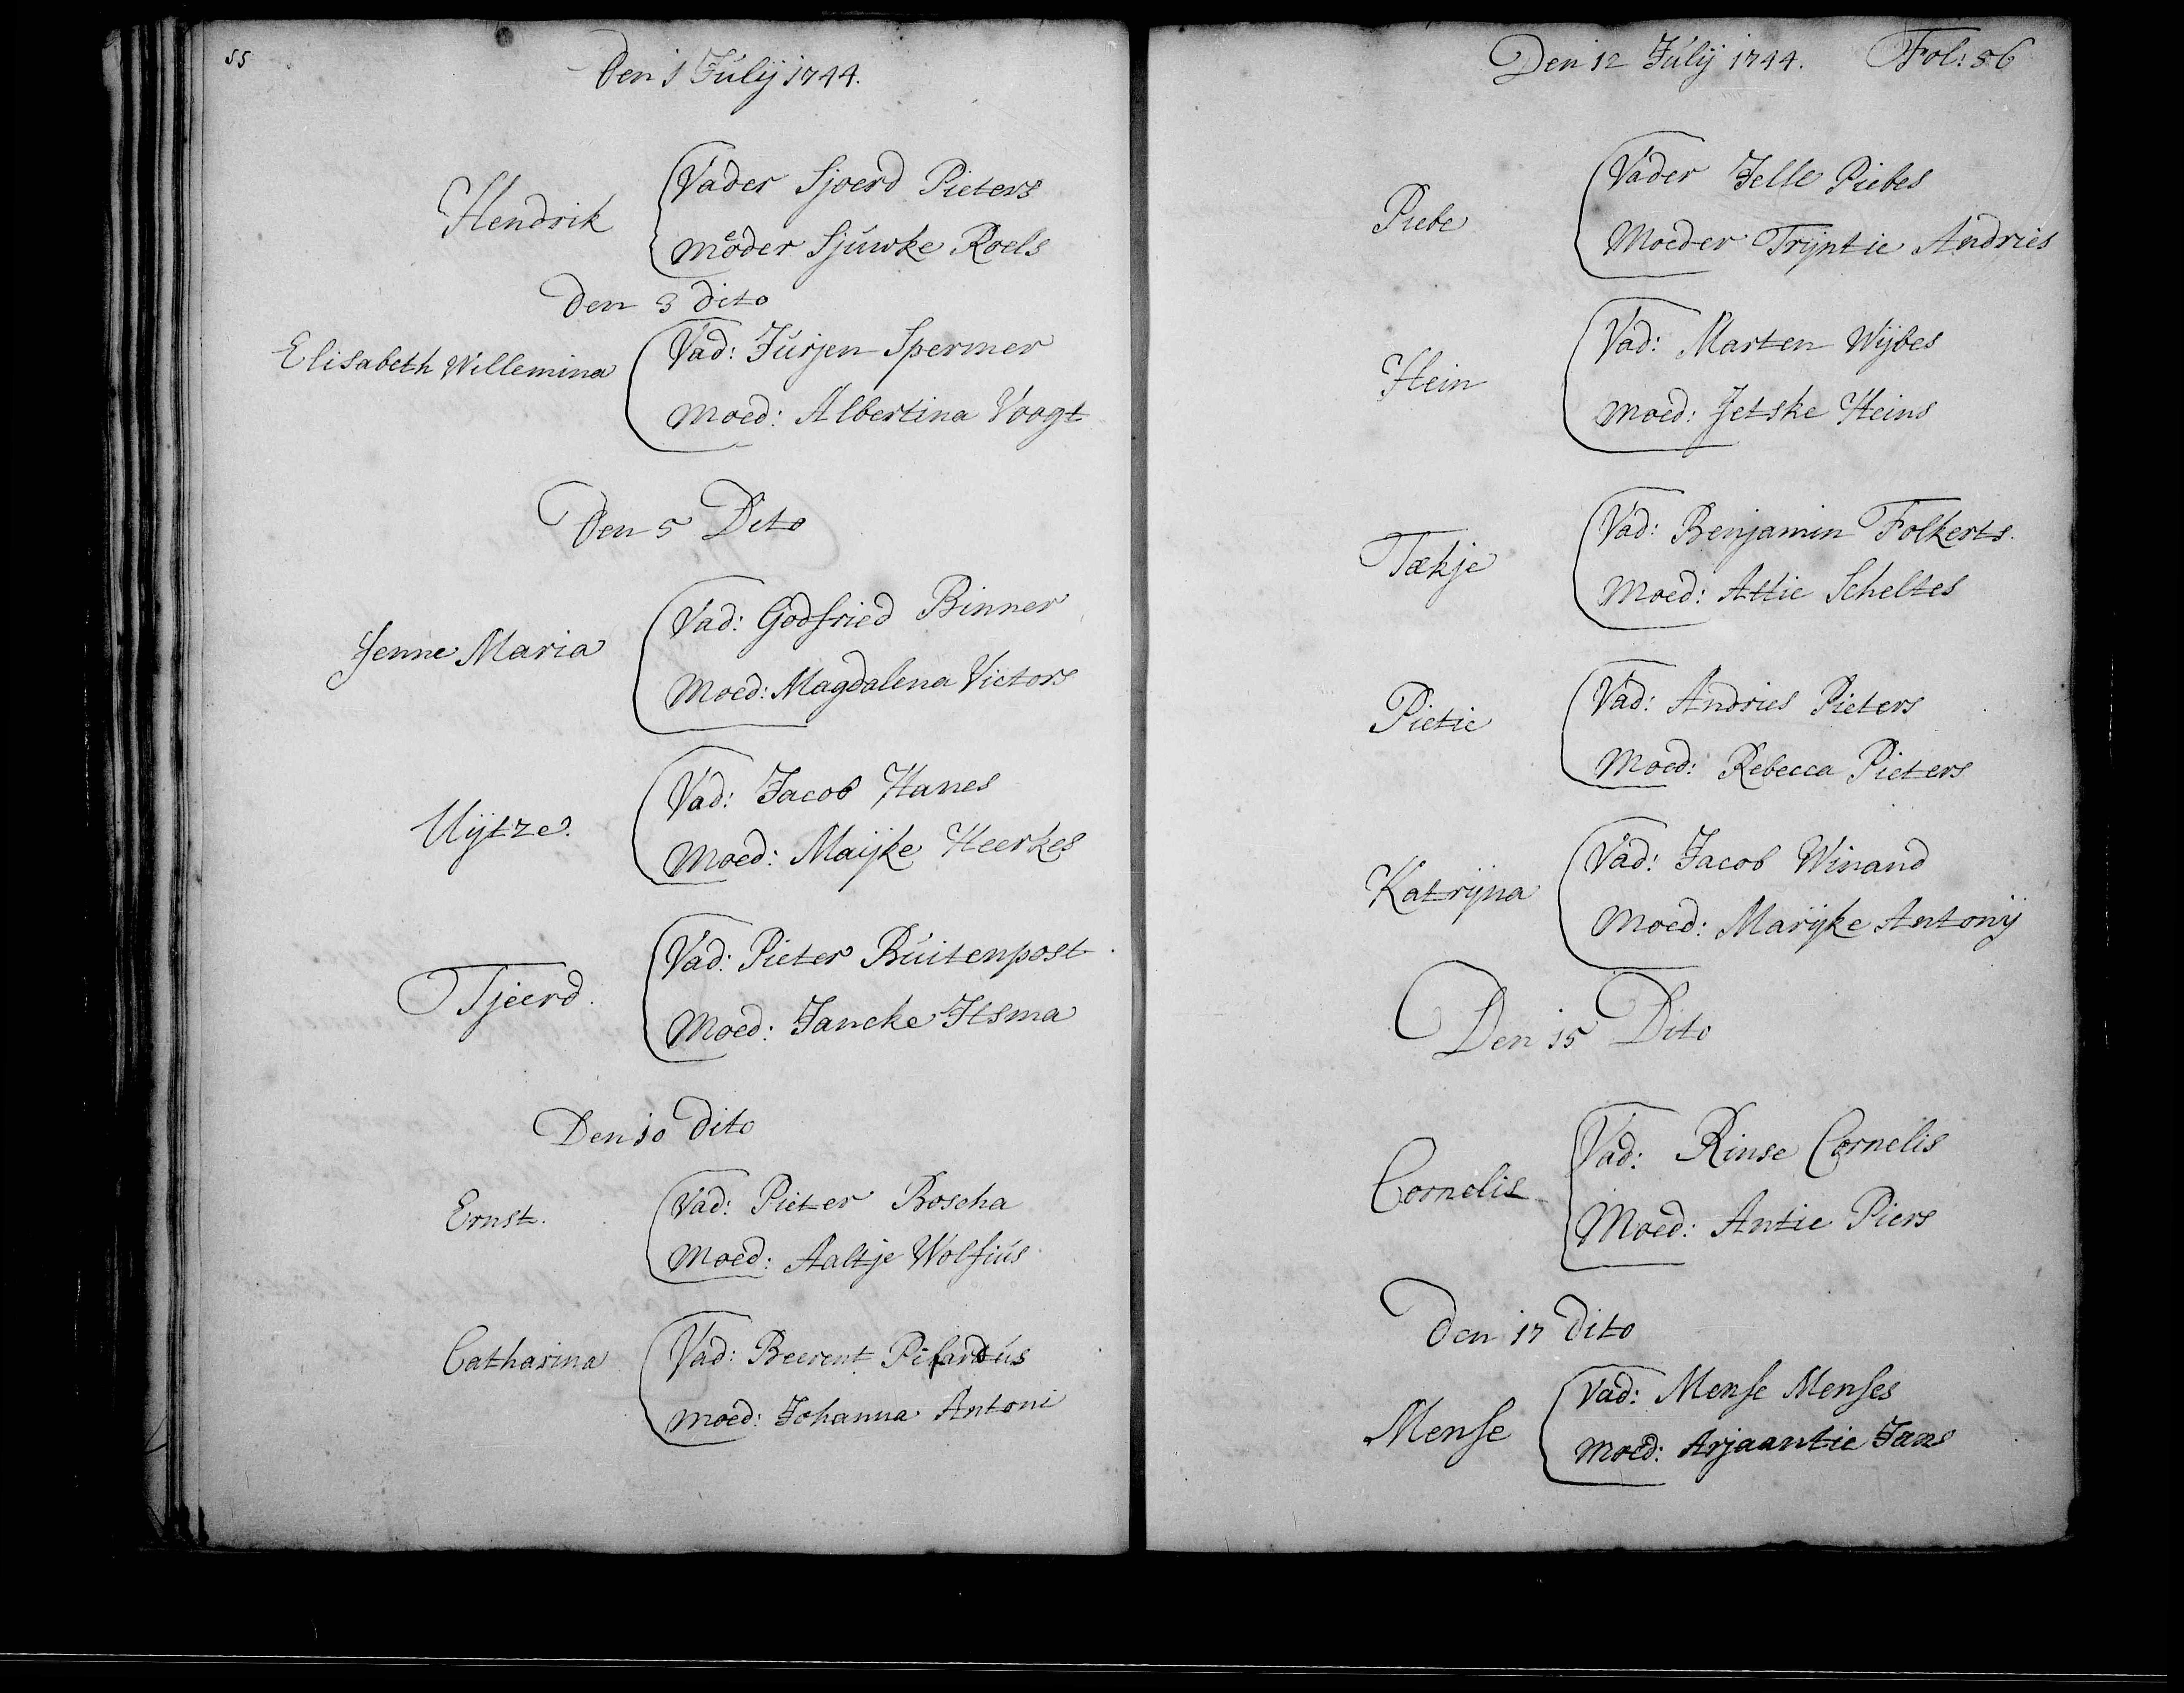 55
Den 1 Julij 1744.
Hendrik
Vader Sjoerd Pieters
Moeder Sjuwke Roels
Den 3 dito
Elisabeth Willemina
Vad: Jurjen Spermer
Moed: Albertina Voogt
Den 5 Dito
Jenne Maria
Vad: Godfried Binner
Moed: Magdalena Victors
Uijtze.
Vad: Jacob Hanes
Moed: Maijke Heerkes
Tjeerd.
Vad: Pieter Buitenpost
Moed: Jancke Itsma
Den 10 dito
Ernst.
Vad: Pieter Boscha
Moed: Aaltje Wolfius
Catharina
Vad: Beerent
Moed: Johanna Antoni
Den 12 Julij 1744. Fol: 56
Piebe
Vader Jelle Piebes
Moeder Trijntie Andries
Hein
Vad: Marten Wijbes
Moed: Jetske Heins
Tækje
Vad: Benjamin Folkerts.
Moed: Attie Scheltes
Pietie
Vad: Andries Pieters
Moed: Rebecca Pieters
Katrijna
Vad: Jacob Winand
Moed: Marijke Antonij
Den 15 Dito
Cornelis
Vad: Rinse Cornelis
Moed: Antie Piers
Den 17 Dito
Mense
Vad: Mense Menses
Moed: Arjaantie Jans